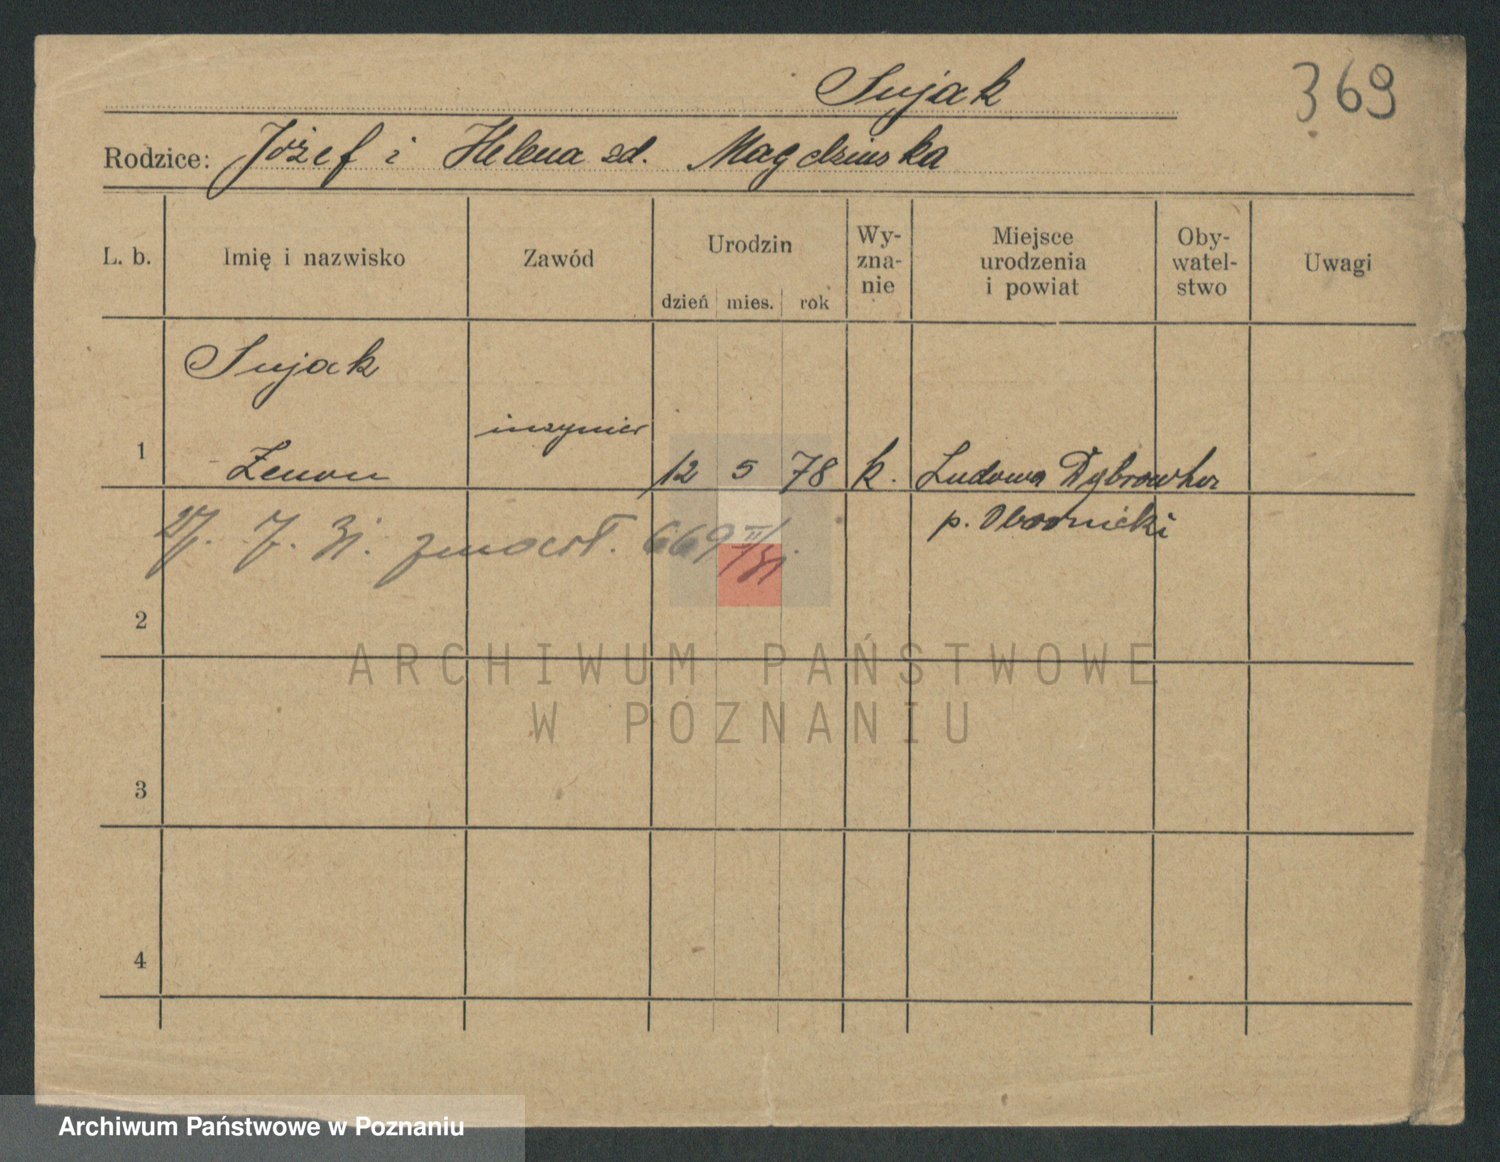 Sujak
369
Rodzice: Józef i Helena zd. Magdzinska
L. b.
Imię i nazwisko
Zawód
Urodzin
dzień mies. rok
Wy-
zna-
nie
Miejsce
urodzenia
i powiat
Oby-
watel-
stwo
Uwagi
Sujak
inzynier
1 Zenon 12 5 78 k. Ludowa Dąbrowka
p. Obornicki
27. 7. 31. zmarł. 669 III/31.
2
ARCHIWUM PAŃSTWOWE
W POZNANIU
3
4
Archiwum Państwowe w Poznaniu